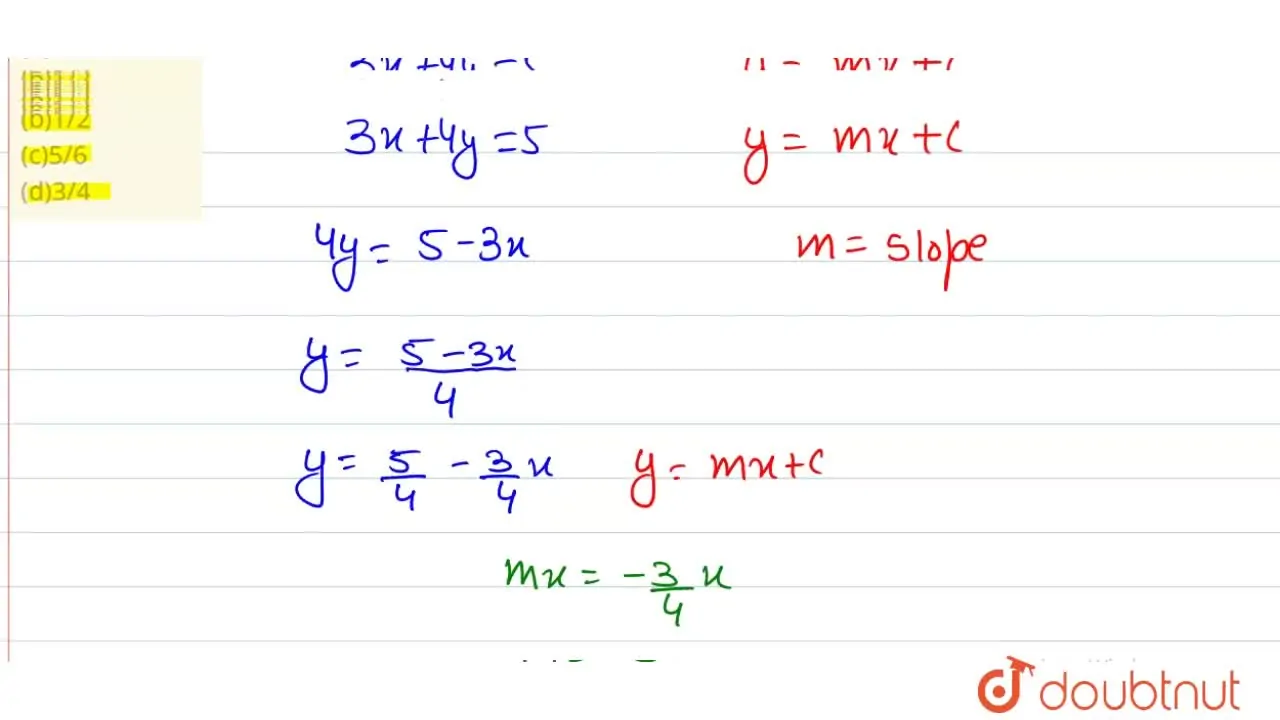 (b)1/2
(c)5/6
(d)3/4
3x+4y=5
y = mx+c
4y = 5-3x
m = slope
y = 5-3x/4
y = 5/4 - 3/4 x
y = mx+c
mx = -3/4 x
doubtnut